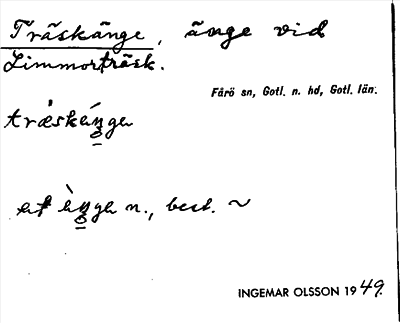 Träskänge, änge vid
Limmorträsk.
Fårö sn, Gotl. n. hd, Gotl. län.
träskánga
et ànga n., best. ~
INGEMAR OLSSON 1949.